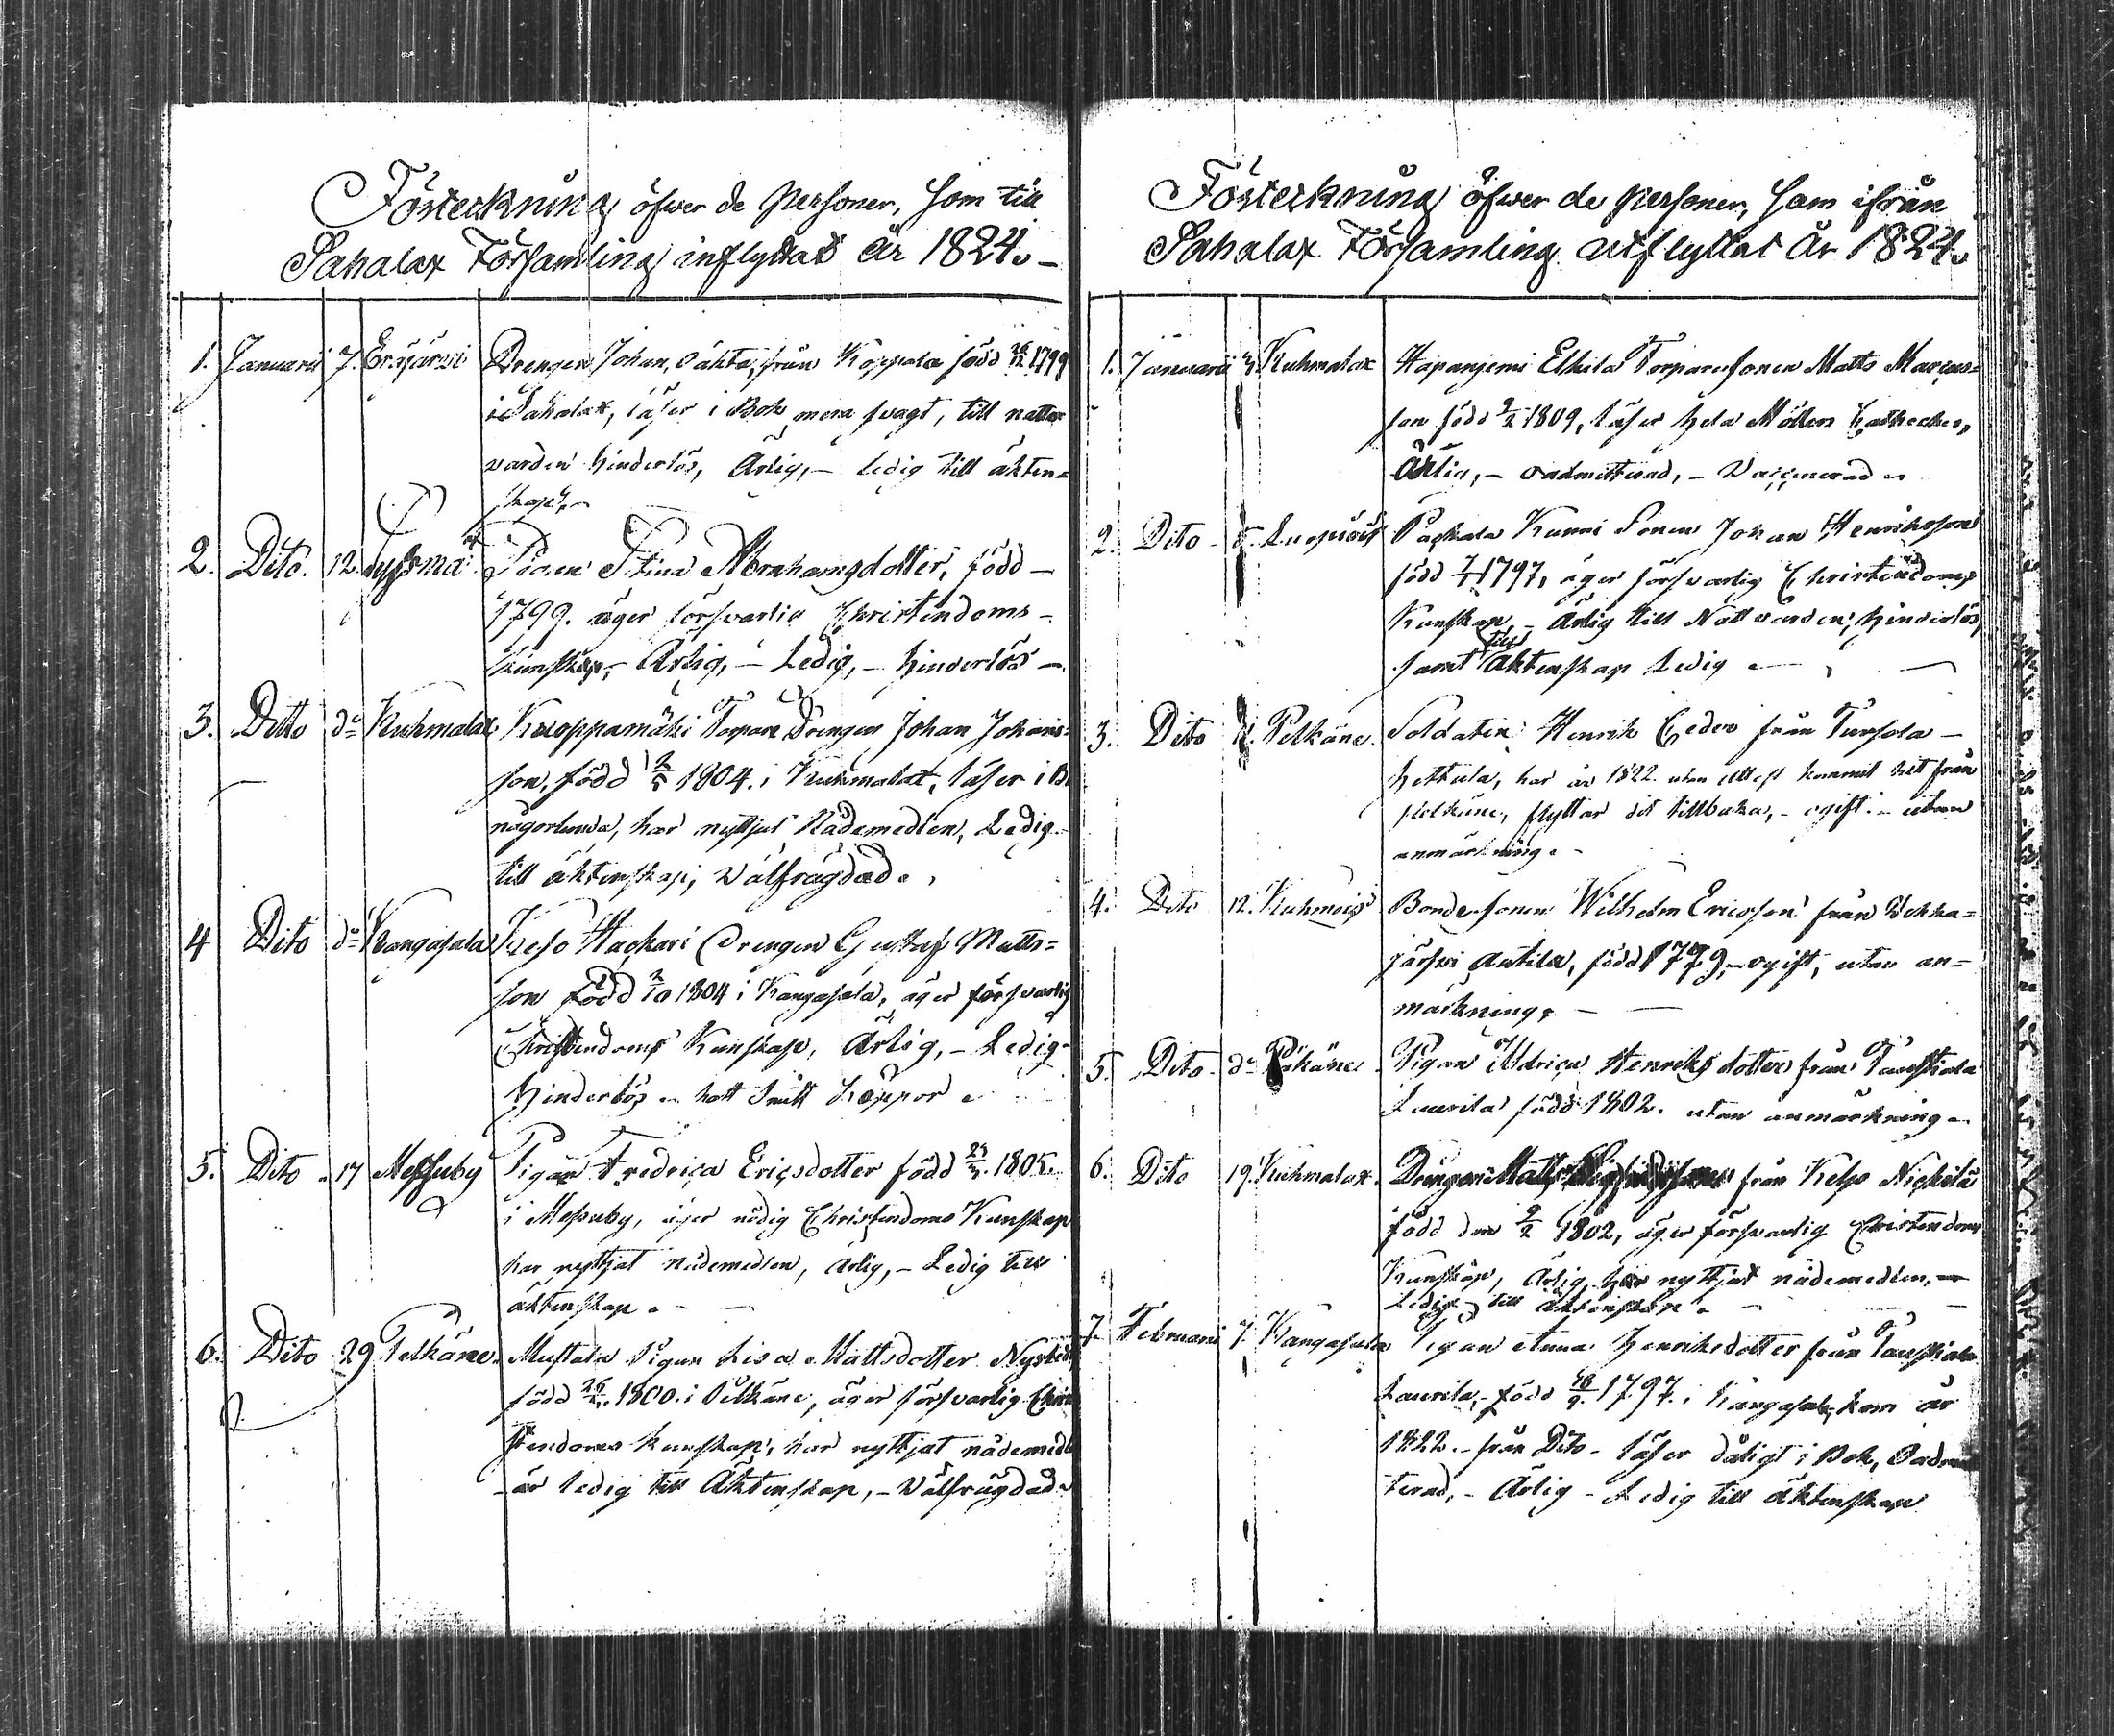 Förteckning öfwer de Personer, som till
Sahalax Församling inflyttat År 1824. –
1. Januarii 7. Eräjärwi Drengen Johan, oäkta, från Koppala född 26/12 1799
i Sahalax, läser i Bok mera svagt, till nattvarden
hinderlös, Ärlig, – ledig till äkten-
skap. –
2. Dito. 12. Pigan Stina Abrahamsdotter, född –
1799. äger försvarlig Christendoms –
kunskap, – Ärlig, – Ledig, – hinderlös –
3. Ditto do Kuhmalax. Kuoppamäki Torpare Drengen Johan Johans-
son, född 1804. i Kuhmalax, läser i B
någorlunda, har nyttjat Nådemedlen, Ledig –
till äktenskap, Wälfrägdad.
4 Dito do Kangasala Hackari Drengen Gustaf Matts=
son född 2/10 1804 i Kangasala, äger försvarlig
Christendoms Kunskap, Ärlig, – Ledig –
Hinderlös – haft Smitt koppor
5. Dito 17 Messuby Pigan Fredrica Ericsdotter född 1805.
i Messuby, äger nödig Christendoms Kunskap
har nyttjat nådemedlen, ärlig, – Ledig till
äktenskap. –
6. Dito 29 Pelkäne. Mustala Pigan Lisa Mattsdotter
född 1800. i Pelkäne, äger försvarlig Chris
tendoms kunskap, har nyttjat nådemedl
är ledig till Äktenskap, – Wälfrägdad.
Förteckning öfwer de personer, som ifrån
Sahalax Församling utflyttat År 1824.
1. Januarii Kuhmalax Hapaniemi Torparesonen Matts Marcus-
son född 9/2 1809, läser hela Möllers Catheches,
Ärlig, – oadmitterad, – Vaccinerad –
2. Dito Luopiois Packala Kunni Sonen Johan Henriksson
född 1797, äger försvarlig Christendoms
Kunskap, – Ärlig till Nattvarden, hinderlös,
samt till Äktenskap Ledig –
3. Dito Pelkäne. Soldaten Henrik Ceder från
Hettula, har år 1822. utan attest kommit hit från
Pelkäne, flyttar dit tillbaka, – ogift – utan
anmärkning. –
4. Dito 12. Kuhmois Bondesonen Wilhelm Ericsson från Wehka=
järfwi Antila, född 1779, – ogift, utan an=
märkning. –
5. Dito do Pelkäne. Pigan Uldrica Henriksdotter från Pauskala
Laurila född 1802. utan anmärkning –
6. Dito 19. Kuhmalax. Drengen Matts från Nickilä
född den 9/2 1802, äger försvarlig Christendoms
Kunskap, Ärlig, har nyttjat nådemedlen, –
Ledig till äktenskap. –
7. Februarii 7. Kangasala Pigan Anna Henriksdotter från Pauskala
Laurila, – född 1797. i Kangasala, kom år
1822. – från Dito – läser dåligt i Bok, Oadmit
terad, – Ärlig – Ledig till äktenskap